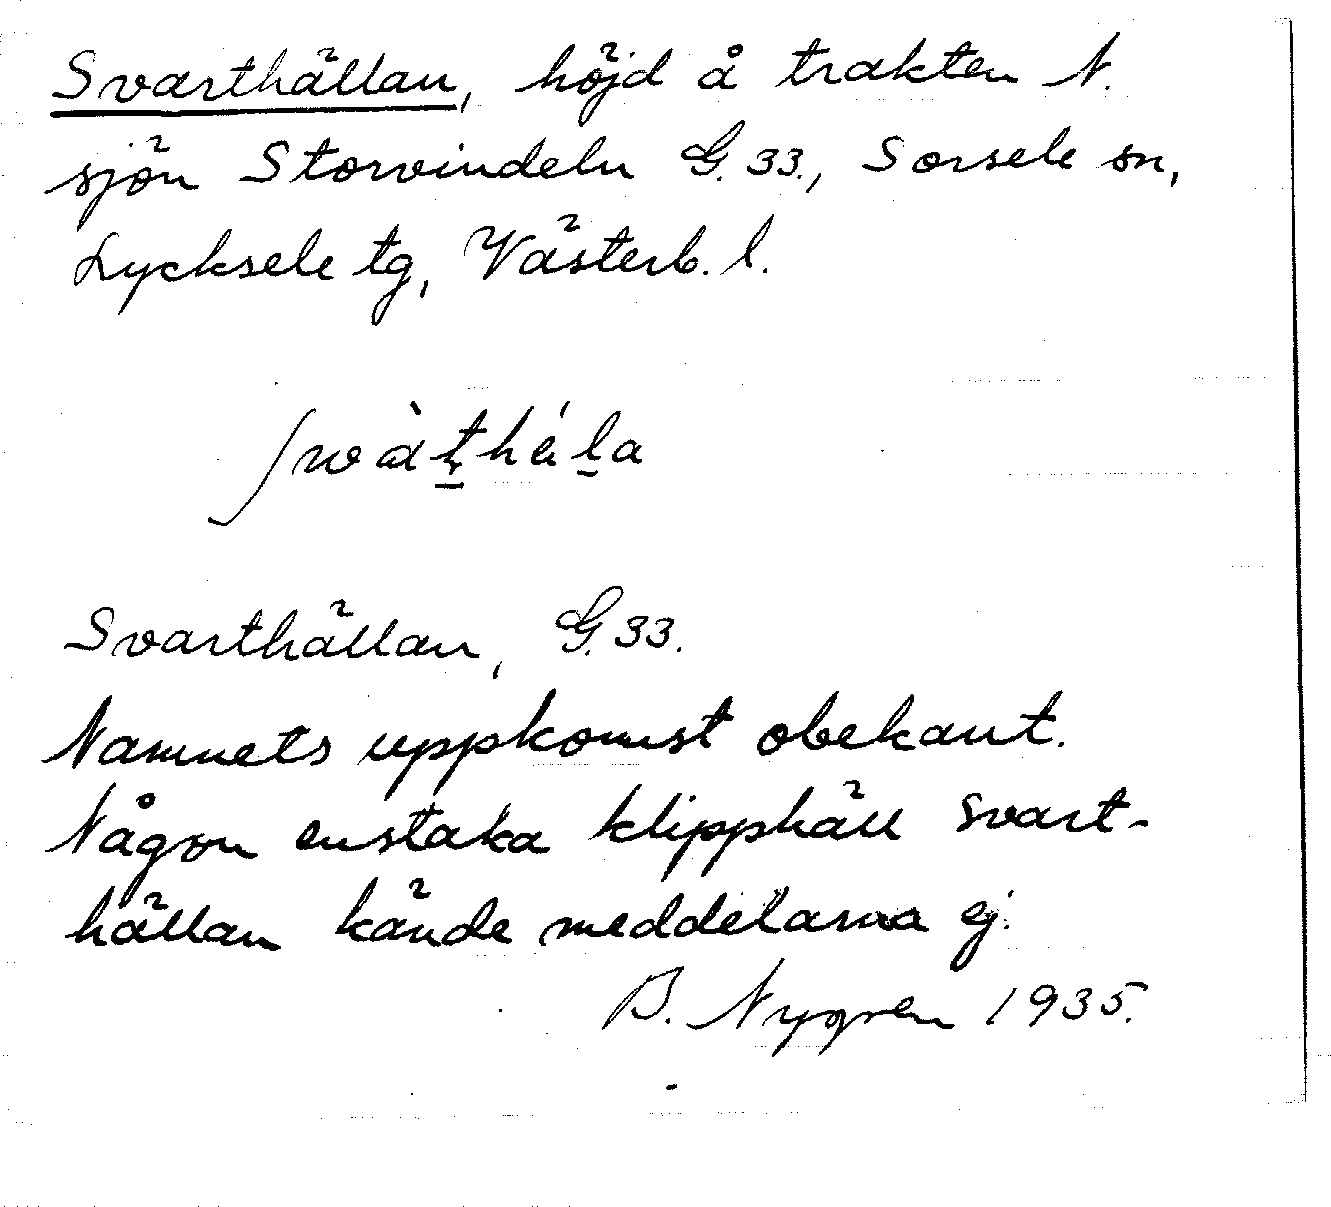 Svarthällan, höjd å trakten N.
sjön Storvindeln G. 33., Sorsele sn,
Lycksele tg, Västerb. l.
Svarthällan, G. 33.
Namnets uppkomst obekant.
Någon enstaka klipphäll svart-
hällan kände meddelarna ej.
B. Nygren 1935.